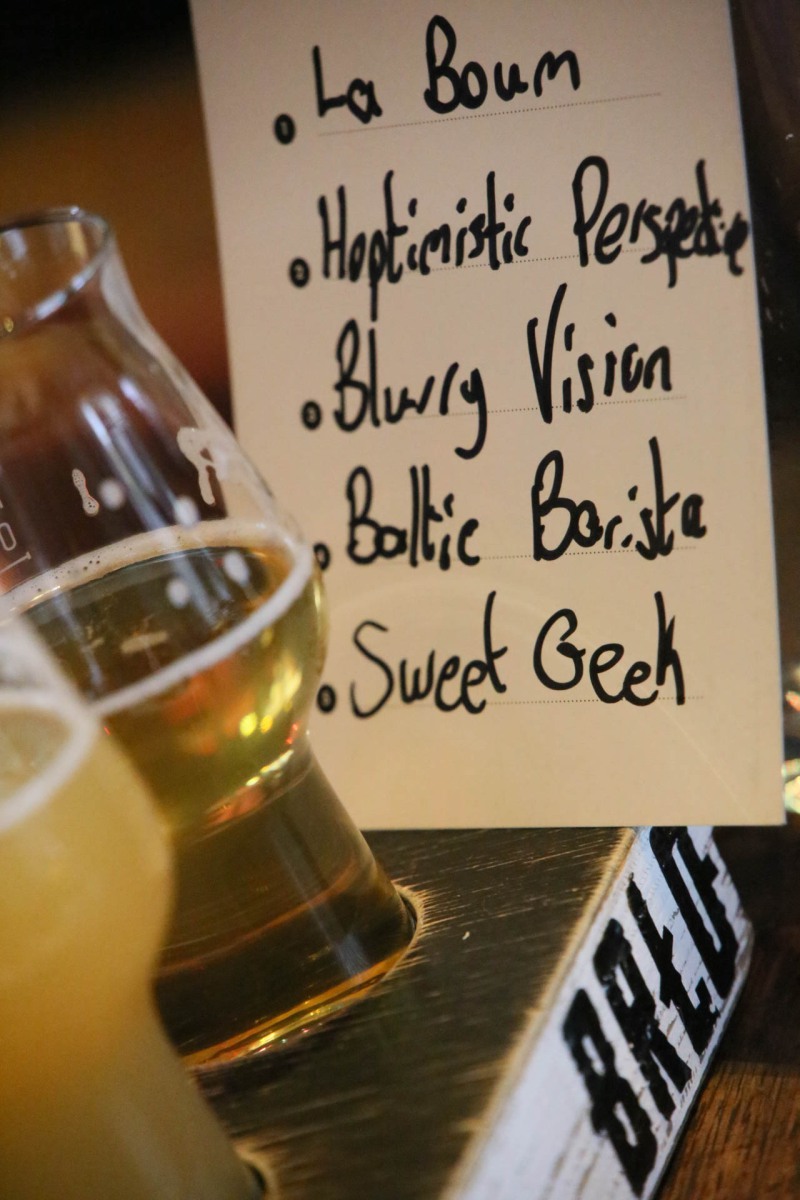 1 La Boum
2 Hoptimistic Perspective
3 Blurry Vision
Baltic Barista
Sweet Geek
BRLO